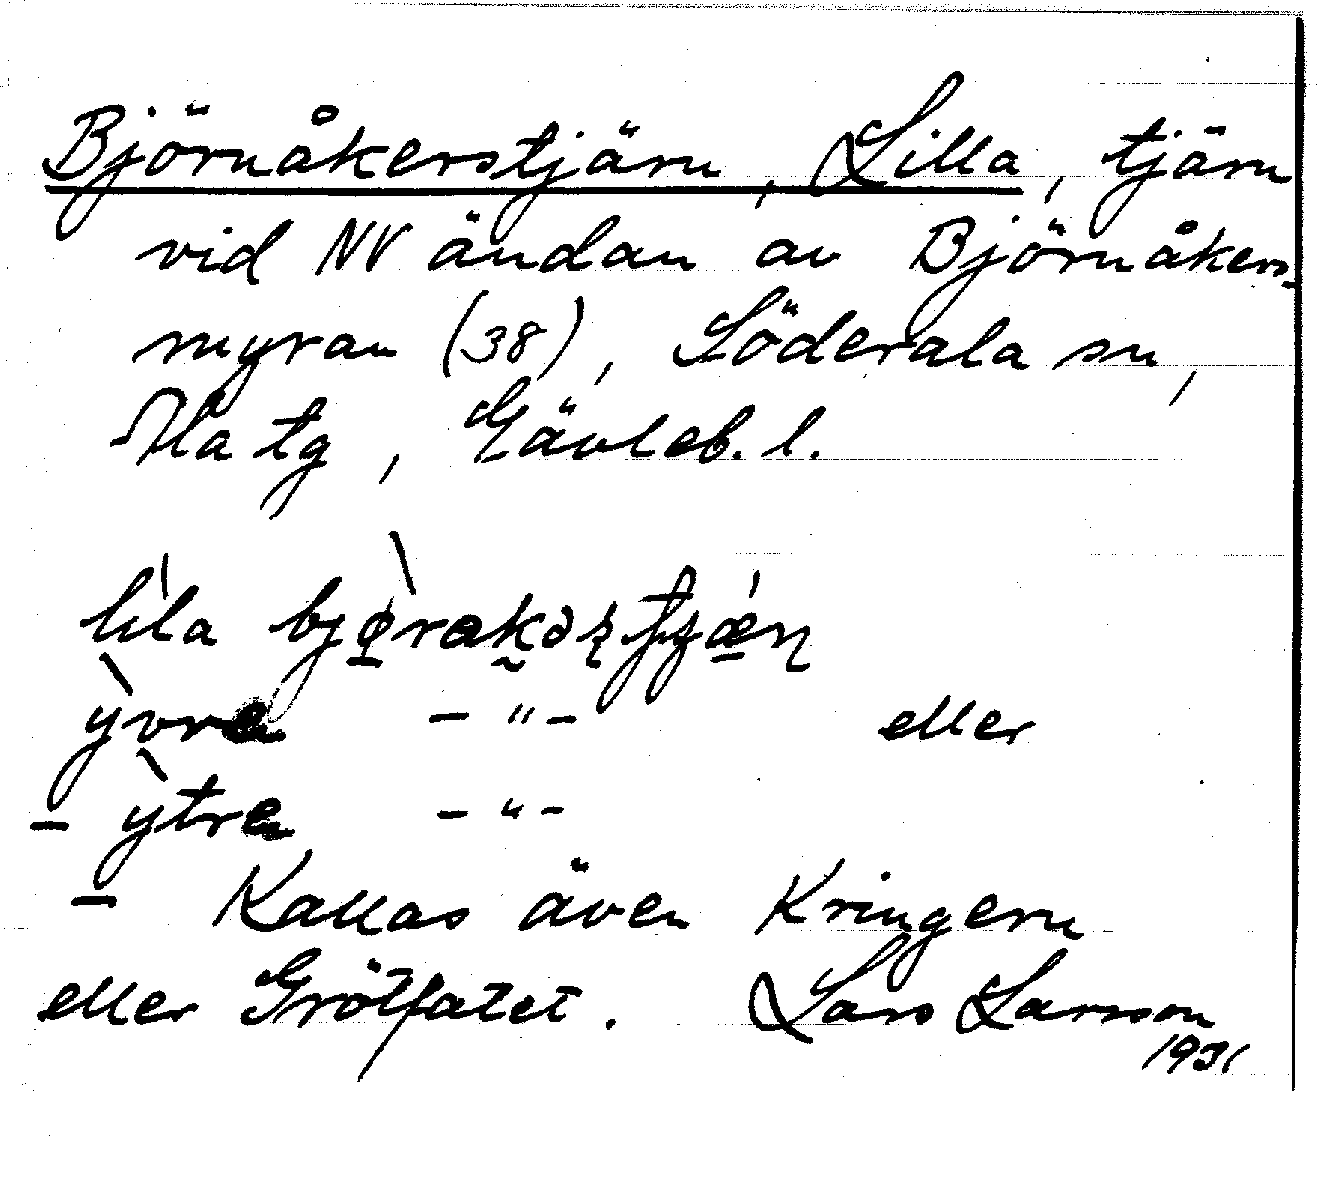 Björnåkerstjärn, Lilla, tjärn
vid NV ändan av Björnåkers-
myran (38), Söderala sn,
Ala tg, Gävleb. l.
lìla
yvre - " - eller
ytre - " -
Kallas även Kringern
eller Grötfatet. Lars Larsson
1931